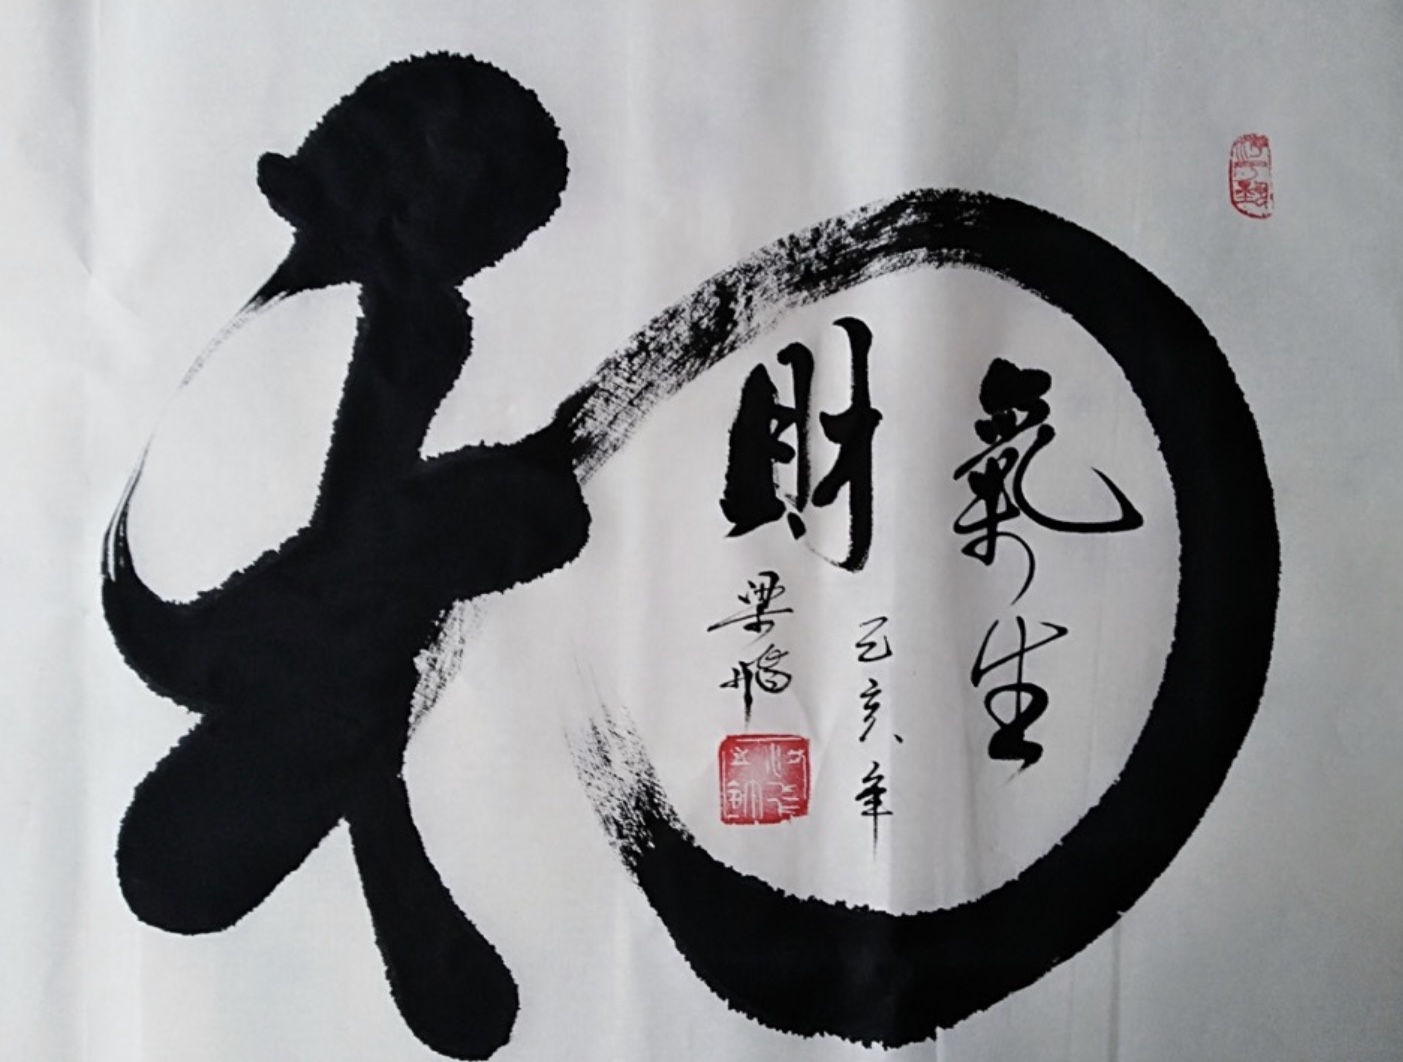 和
氣生
財
己亥年
梁鵬